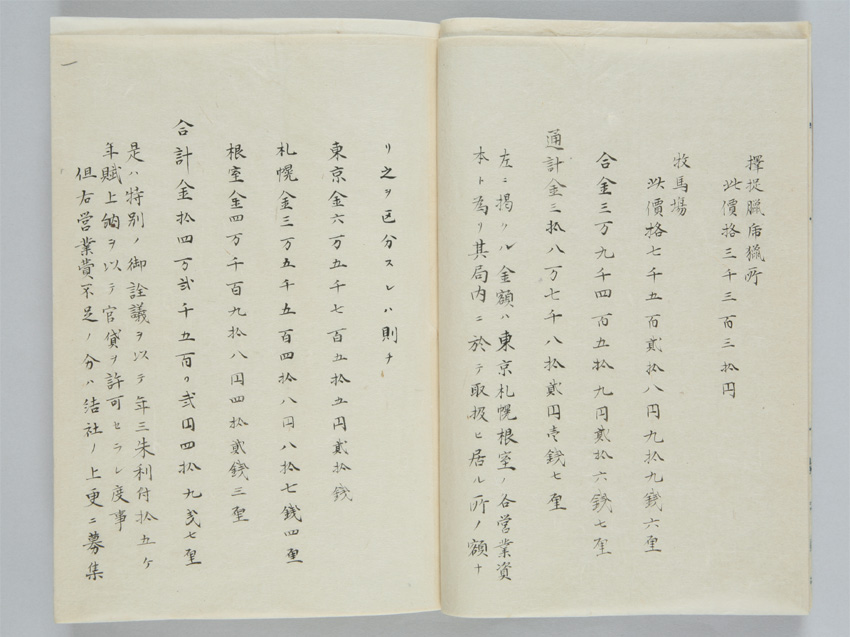 擇捉臘虎獵所
此價格三千三百三拾円
牧馬場
此價格七千五百貳拾八円九拾九錢六厘
合金三万九千四百五拾九円貳拾六錢七厘
通計金三拾八万七千八拾貳円壱錢七厘
左ニ掲クル金額ハ東京札幌根室ノ各営業資
本ト為リ其局内ニ於テ取扱ヒ居ル所ノ額ナ
リ之ヲ区分スレハ則ナ
東京金六万五千七百五拾五円貳拾錢
札幌金三万五千五百四拾八円八拾七錢四厘
根室金四万千百九拾八円四拾貳錢三厘
合計金拾四万貳千五百〇貳円四拾九戋七厘
是ハ特別ノ御詮議ヲ以テ年三朱利付拾五ケ
年賦上納ヲ以テ官貸ヲ許可セラレ度事
但右営業費不足ノ分ハ結社ノ上更ニ募集